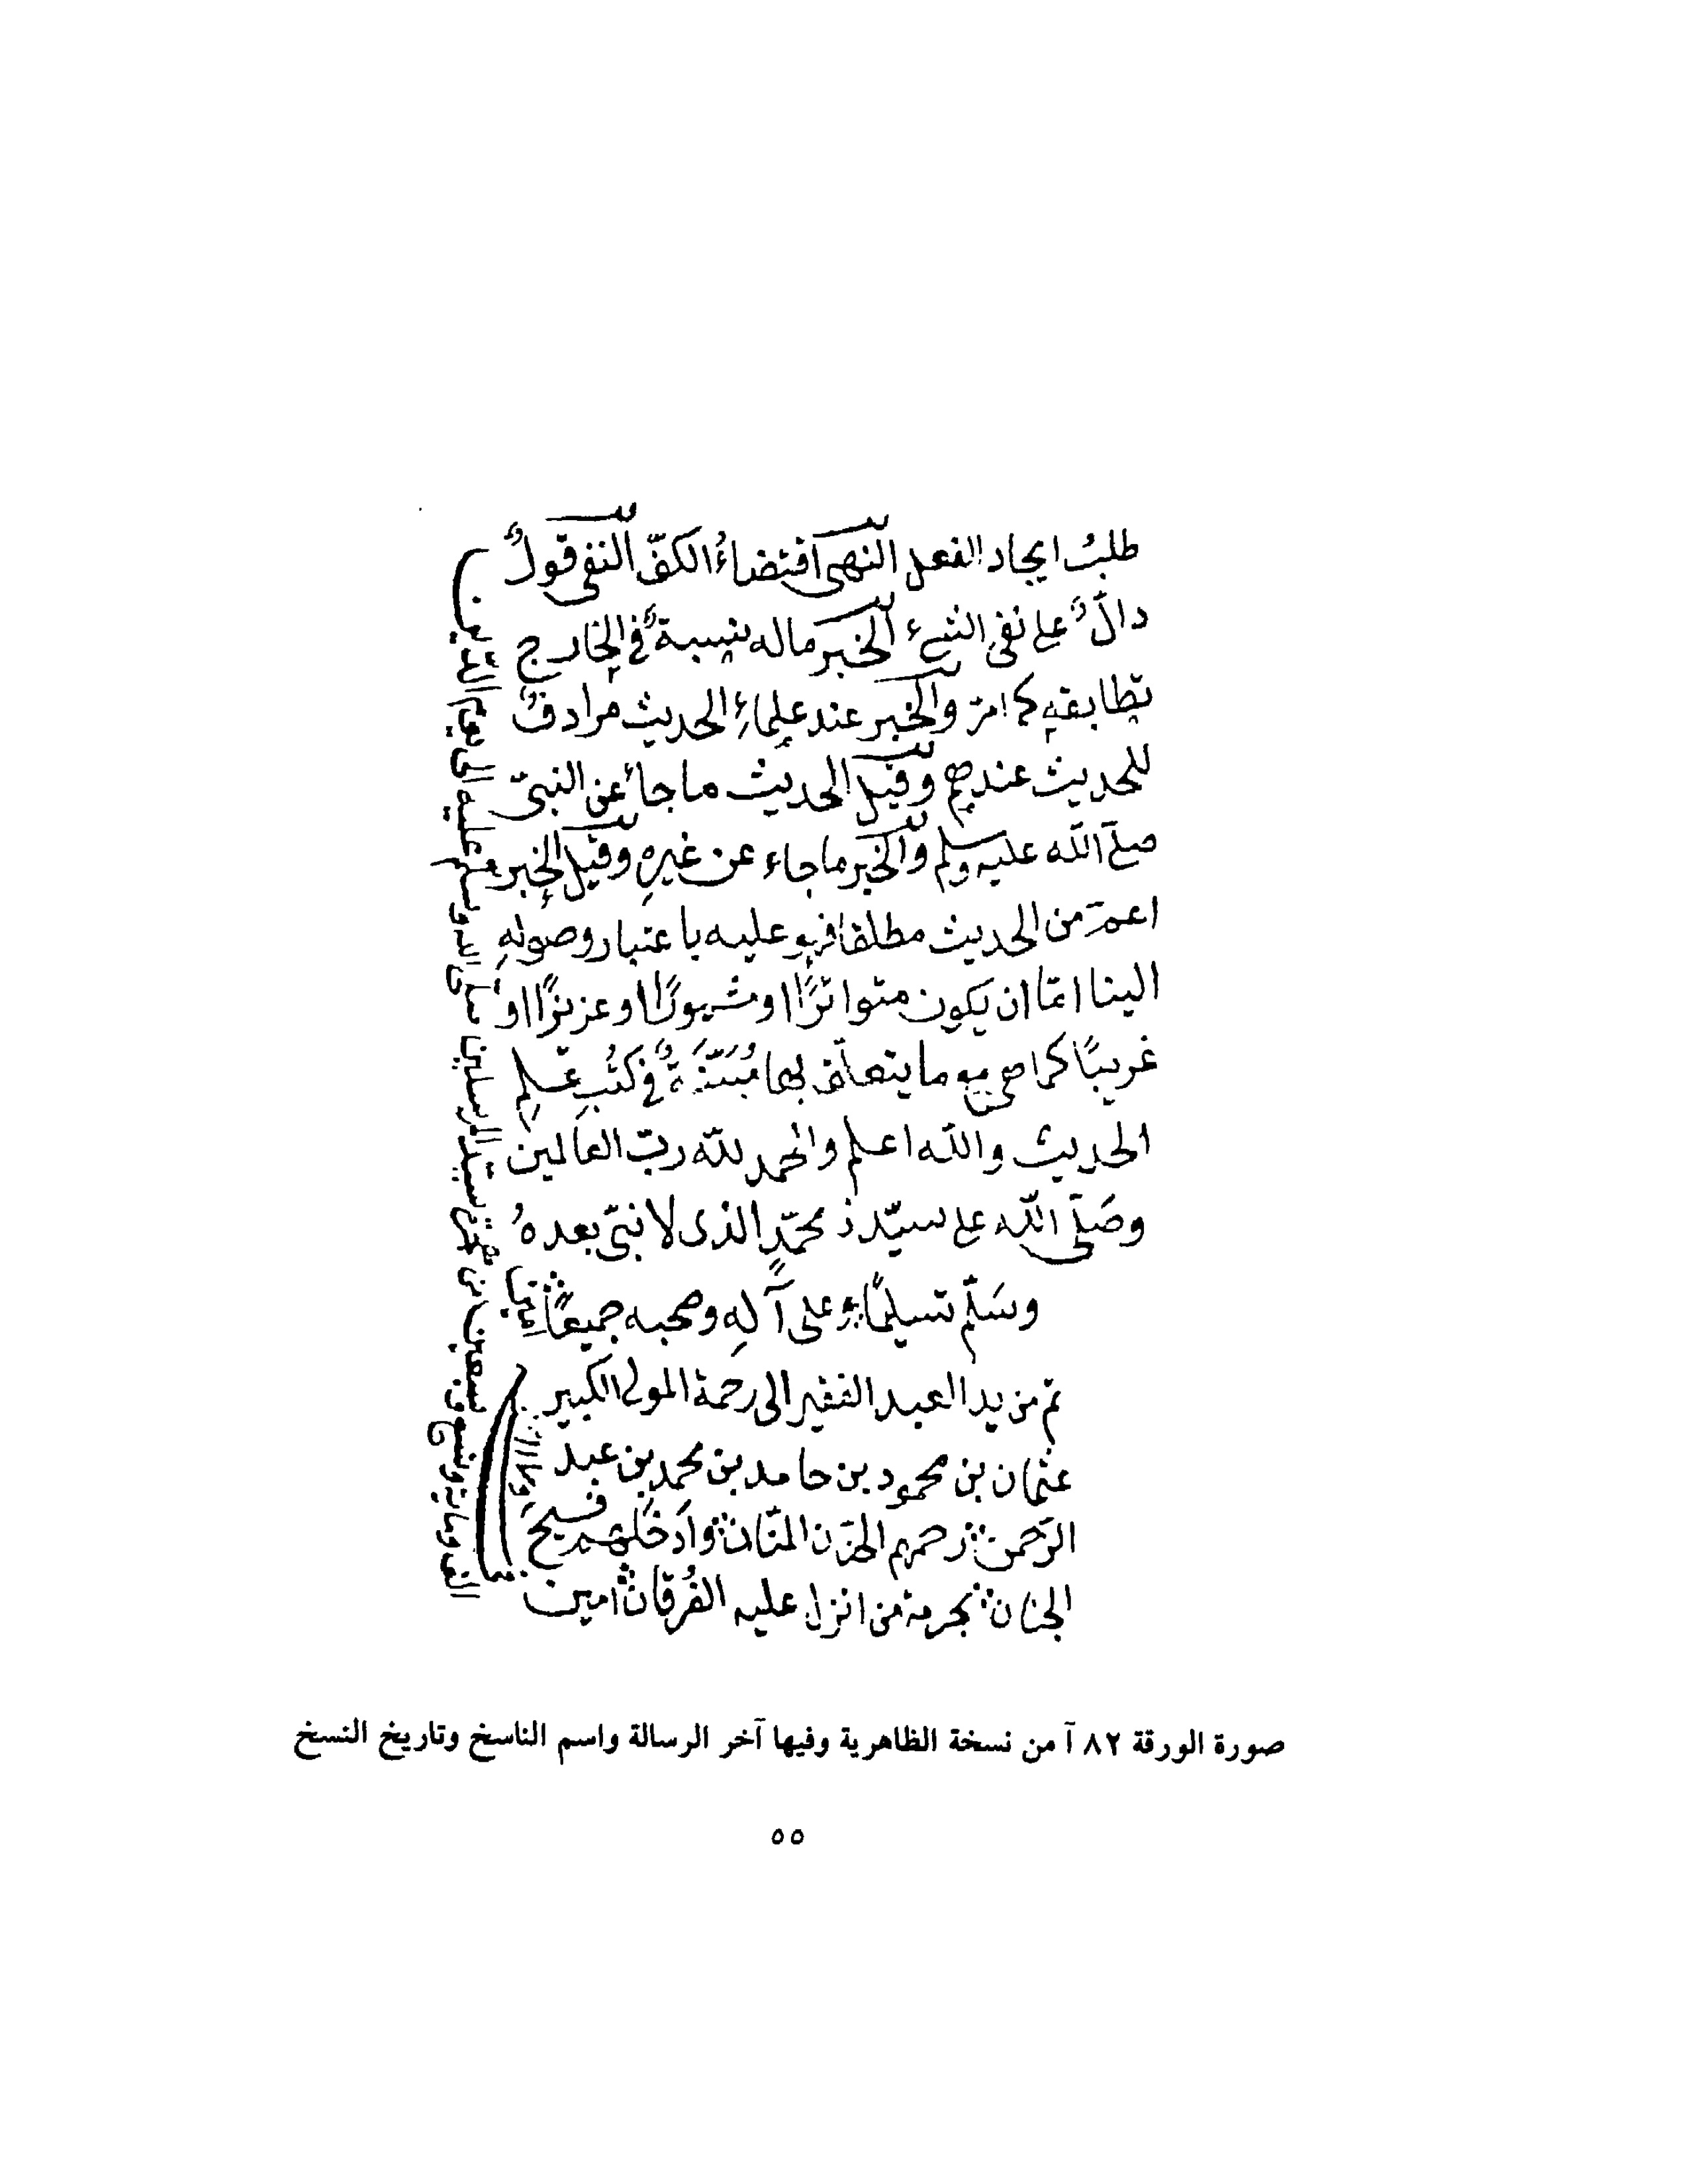 طلبُ ايجاد الفعل النهى اقتضاءُ الكفّ النفى قولٌ
دالٌّ على نفى الشىء الخبر ماله نسبةٌ فى الخارج
تطابقه كما مرّ والخبر عند علماءِ الحديث مرادفٌ
للحديث عندهم وقيل الحديث ما جاء عن النبىّ
صلى الله عليه وسلم والخبر ما جاء عن غيرهِ وقيل الخبر
اعمّ من الحديث مطلقا فهو عليه باعتبار وصولهِ
الينا امّا ان يكون متواترًا او مشهورًا او عزيزًا او
غريبًا كما هى وما يتعلّق بها مُبَيَّنَةٌ فى كتُبِ علم
الحديث والله اعلم والحمد للّه ربّ العالمين
وصَلّى اللّه على سيّدنا محمّدٍ الذى لا نبىّ بعدهُ
وسَلّم تسليمًا وعلى آلهِ وصحبه جميعًا
تم من يد العبد الفقير الى رحمة المولى الكبير
عثمان بن محمود بن حامد بن محمد بن عبد
الرَحمن رحمهم الحنّان المنّان وادخلهم فسيح
الجنان بحرمة من انزل عليه الفُرقان امين
سيّد المرسلين صلّى الله وسلم عليه الى يوم الدّين
صورة الورقة ٨٢ آ من نسخة الظاهرية وفيها آخر الرسالة واسم الناسخ وتاريخ النسخ
٥٥